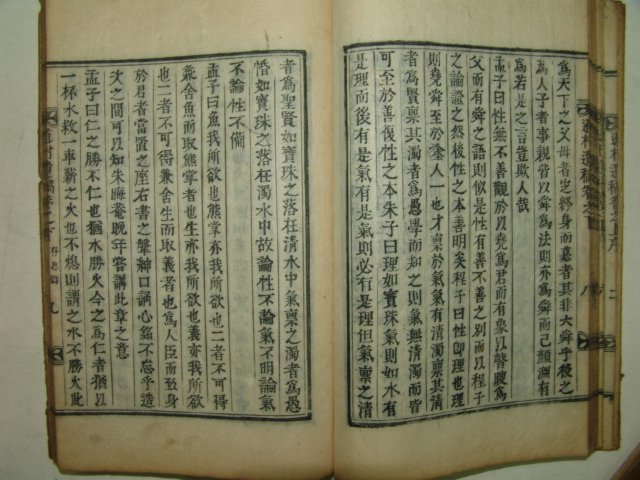 爲天下之父母者乎終身而慕者其非大舜乎後之
爲人子者事親皆以舜爲法則亦爲舜而已顔淵有
爲若是之言豈欺人哉
孟子曰性無不善觀於以堯爲君而有象以瞽瞍爲
父而有舜之語則似是有性善不善之別而以程子
之論證之然後性之本善明矣程子曰性即理也理
則堯舜至於塗人一也才禀於氣氣有淸濁禀其淸
者爲賢禀其濁者爲愚學而知之則氣無淸濁而皆
可至於善復性之本朱子曰理如寶珠氣則如水有
是理而後有是氣有是氣則必有是理但氣禀之淸
者爲聖賢如寶珠之落在淸水中氣禀之濁者爲愚
惛如寶珠之落在濁水中故論性不論氣不明論氣
不論性不備
孟子曰魚我所欲也熊掌亦我所欲也二者不可得
兼舍魚而取熊掌者也生亦我所欲也義亦我所欲
也二者不可得兼舍生而取義者也爲人臣而致身
於君者當置之座右書之鞶紳口誦心銘不忘乎造
次之間可以知朱晦菴晩年嘗講此章之意
孟子曰仁之勝不仁也猶水勝火今之爲仁者猶以
一杯水救一車薪之火也不熄則謂之水不勝火此